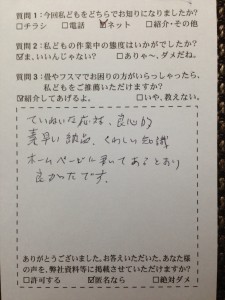 質問１：今回私どもをどちらでお知りになりましたか?
□チラシ　□電話　☑ネット　□紹介・その他
質問２：私どもの作業中の態度はいかがでしたか?
☑ま、いいんじゃない?　□ありゃ〜、ダメだね。
質問３：畳やフスマでお困りの方がいらっしゃったら、
私どもをご推薦いただけますか?
☑紹介してあげるよ。　□いや、教えない。
ていねいな応対、良心的
素早い納品、くわしい知識
ホームページに書いてあるとおり
良かったです。
ありがとうございました。お答えいただいた、あなた様
の声を、弊社資料等に掲載させていただけますか?
□許可する　☑匿名なら　□絶対ダメ